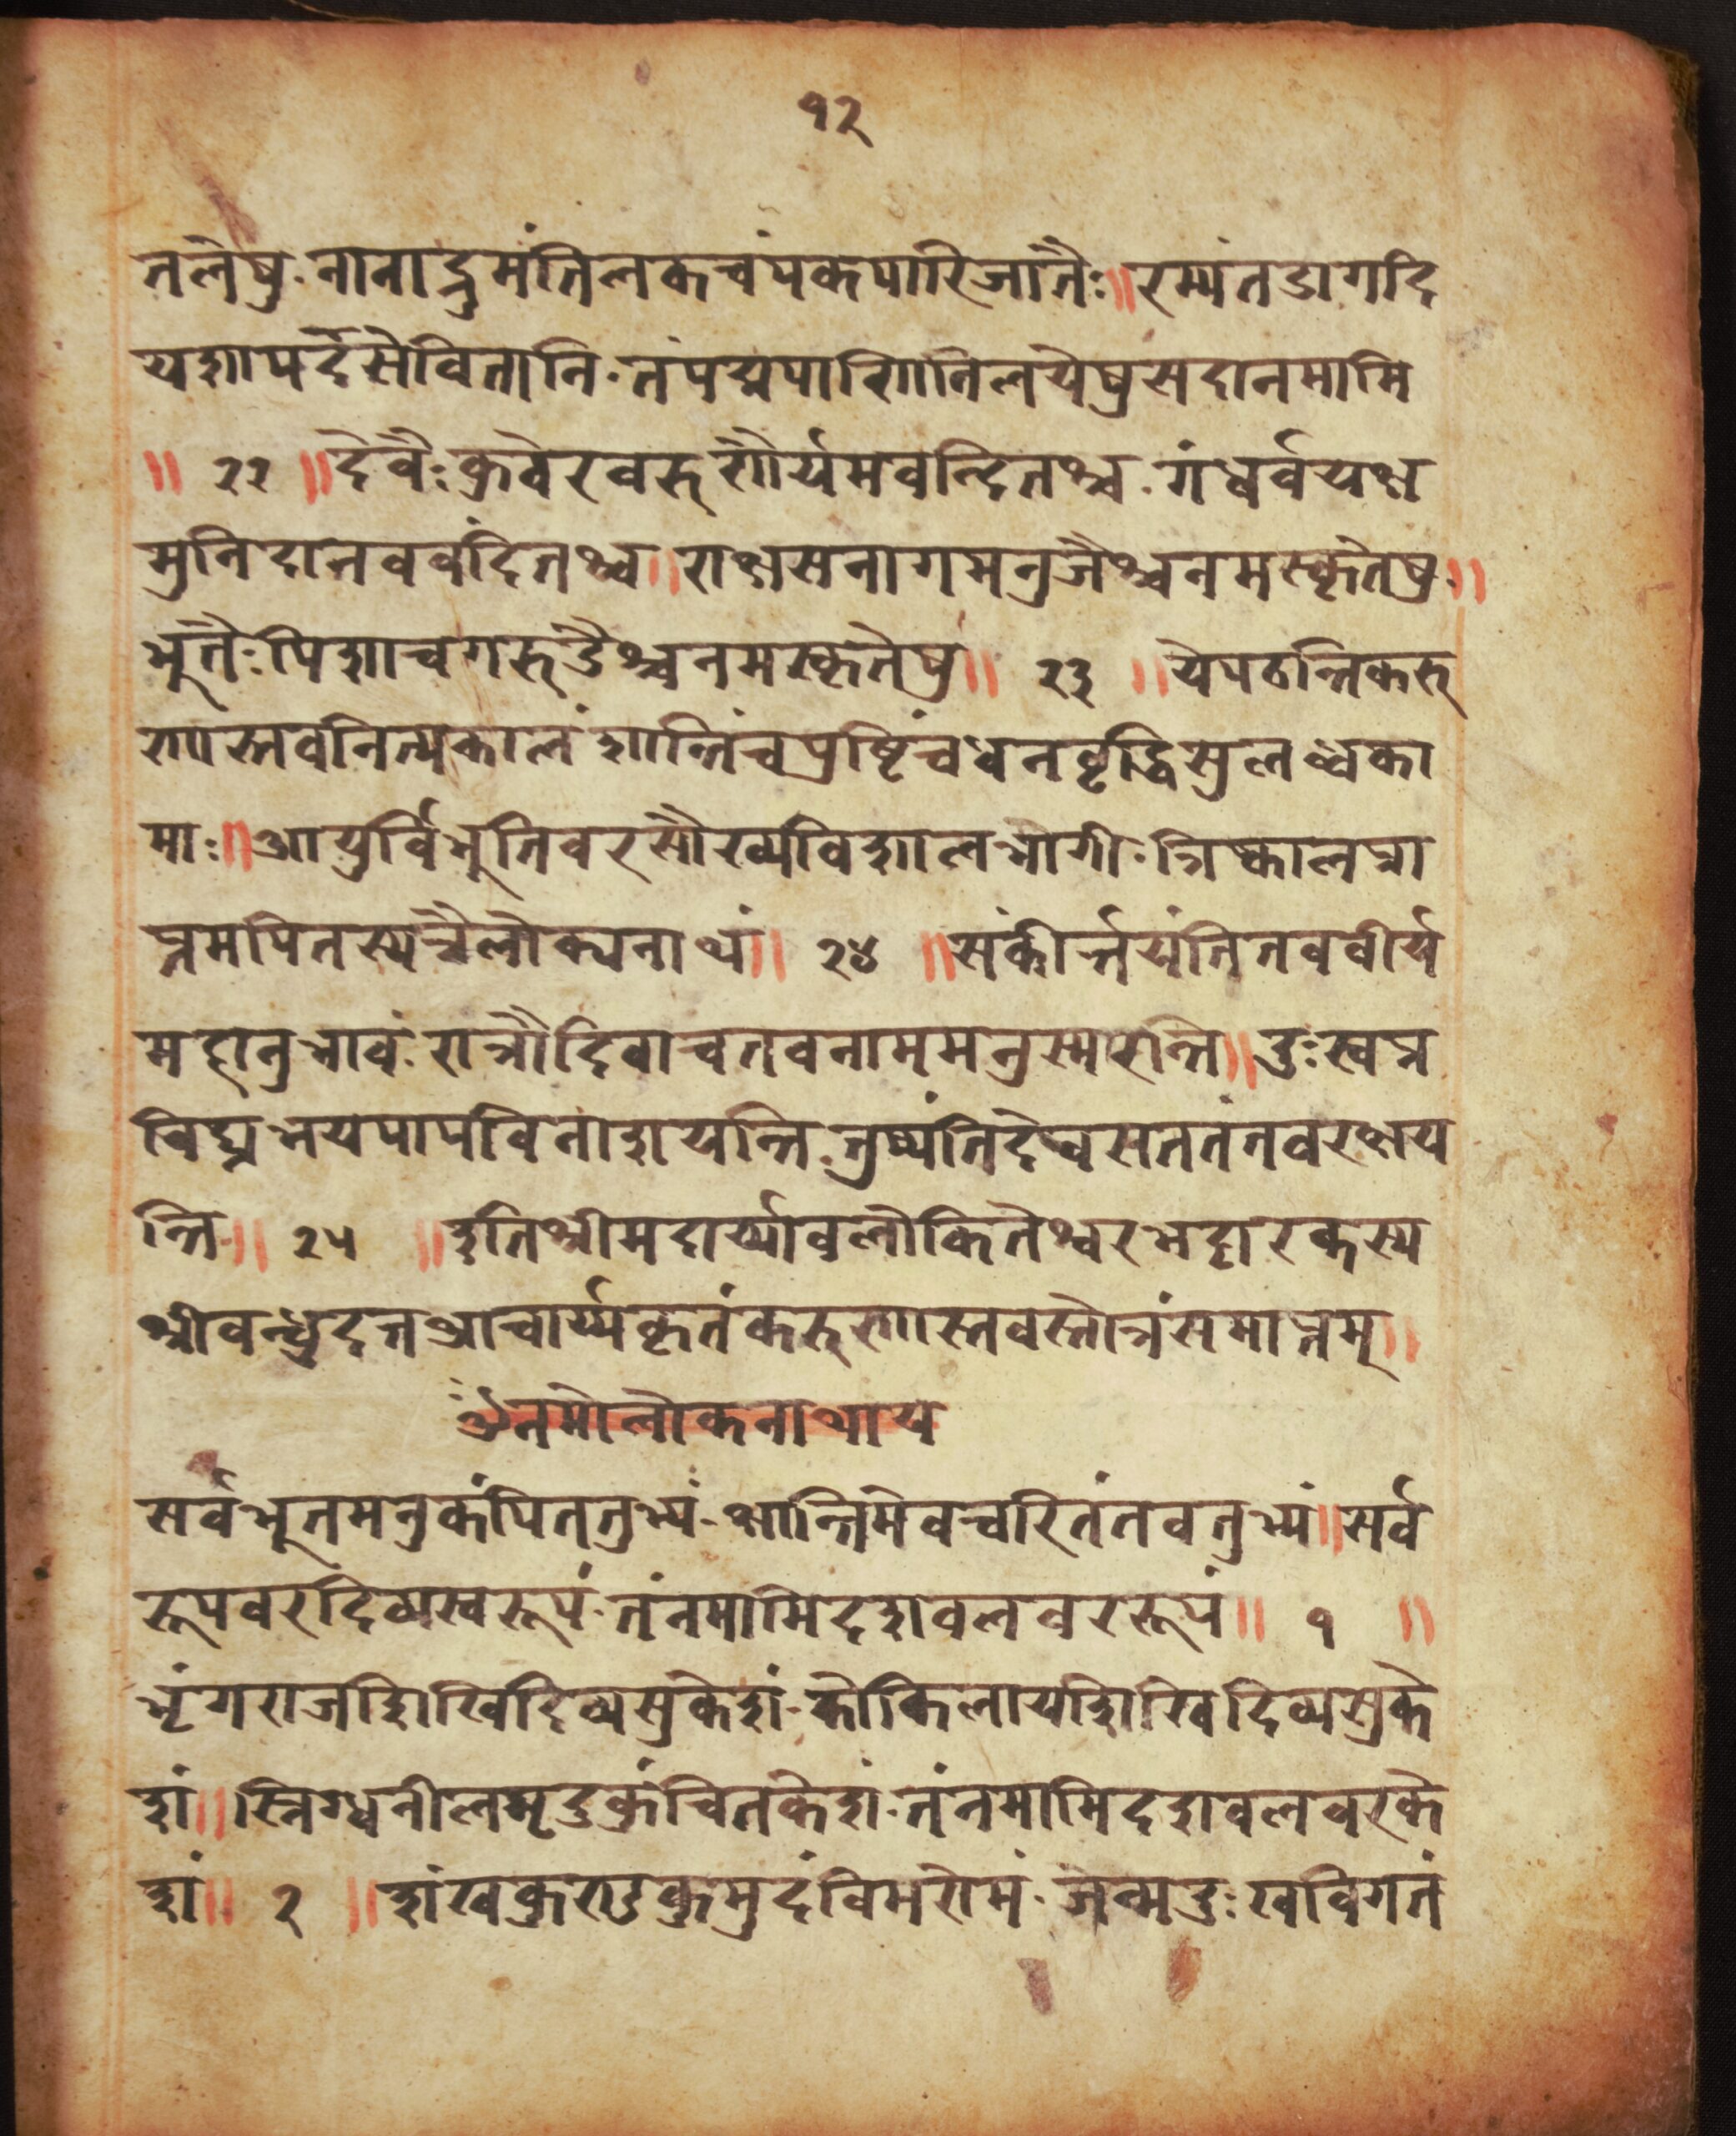 १२
तलेषु.नानाद्रुमंतिलकचंपकपारिजातैः॥रम्यंतडागदि
यशापदसेवितानि.तंपद्मपाणिनिलयेषुसदानमामि
॥ २२ ॥देवैःकुवेरवरुणैर्यमवन्दितश्च.गंधर्वयक्ष
मुनिदानववंदितश्च॥राक्षसनागमनुजैश्चनमस्कृतेषु.॥
भूतैःपिशाचगरुडैश्चनमस्कृतेषु॥ २३ ॥येपठन्तिकरु
णास्तवनित्यकालंशान्तिंचपुष्टिंचधनवृद्धिसुलब्धका
माः॥आयुर्विभूतिवरसौख्यविशालभोगी.त्रिष्कालप्रा
प्तमपितस्यत्रैलोक्यनाथं॥ २४ ॥संकीर्त्तयंतितववीर्य
महानुभावं.रात्रौदिवाचतवनाममनुस्मरन्ति॥दुःस्वप्न
विघ्नभयपापविनाशयन्ति.तुष्यंतिदेवसततंतवरक्षय
न्ति.॥ २५ ॥इतिश्रीमदार्य्यावलोकितेश्वरभट्टारकस्य
श्रीवन्धुदत्तआचार्य्यकृतंकरुणास्तवस्तोत्रंसमाप्तम्॥
ॐनमोलोकनाथाय
सर्वभूतमनुकंपिततुभ्यं.क्षान्तिमेवचरितंतवतुभ्यं॥सर्व
रूपवरदिव्यस्वरूपं.तंनमामिदशवलवररूपं॥ १ ॥
भृंगराजशिखिदिव्यसुकेशं.कोकिलायशिखिदिव्यसुके
शं॥स्निग्धनीलमृदुकुंचितकेशं.तंनमामिदशवलवरके
शं॥ २ ॥शंखकुण्डकुमुदंविमरोमं.जन्मदुःखविगतं